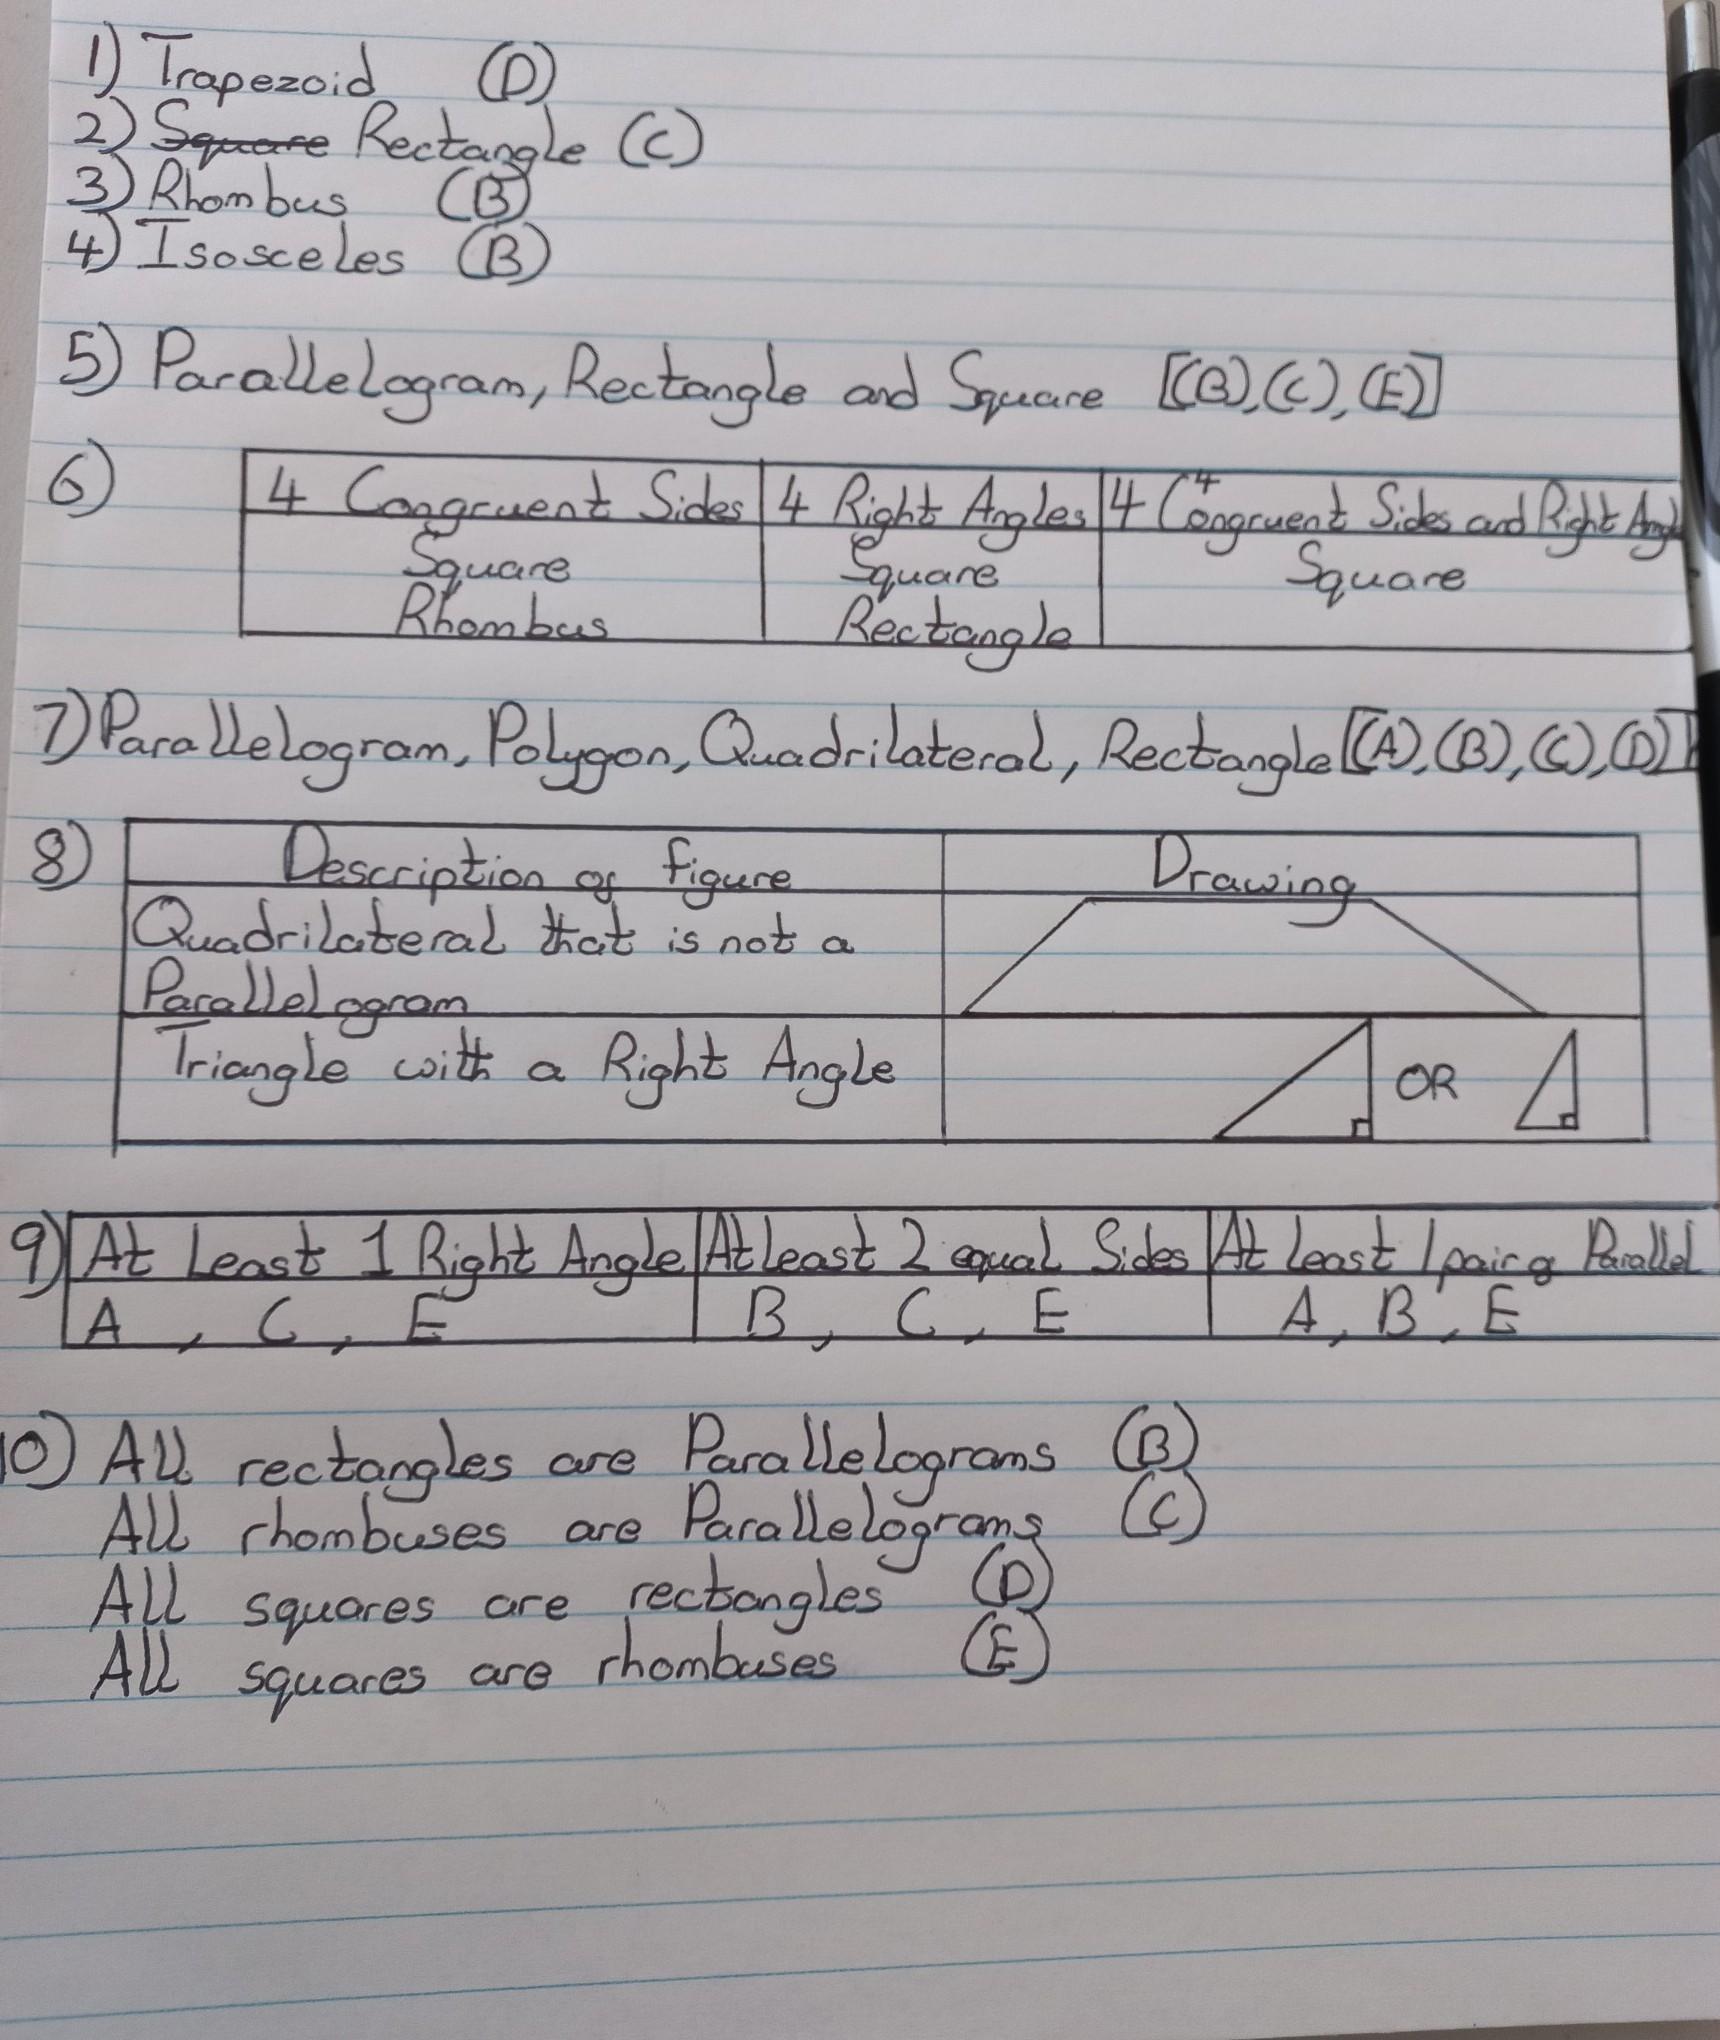 1) Trapezoid (D)
2) Square Rectangle (C)
3) Rhombus (B)
4) Isosceles (B)
5) Parallelogram, Rectangle and Square [(B), (C), (E)]
6) 4 Congruent Sides 4 Right Angles 4 Congruent Sides and 4 Right Angl
Square Square Square
Rhombus Rectangle
7) Parallelogram, Polygon, Quadrilateral, Rectangle [(A), (B), (C), (D)]
8) Description of figure Drawing
Quadrilateral that is not a
Parallelogram
Triangle with a Right Angle OR
9) At Least 1 Right Angle At least 2 equal Sides At least 1 pair of Parallel
A, C, E B, C, E A, B, E
10) All rectangles are Parallelograms (B)
All rhombuses are Parallelograms (C)
All squares are rectangles (D)
All squares are rhombuses (E)